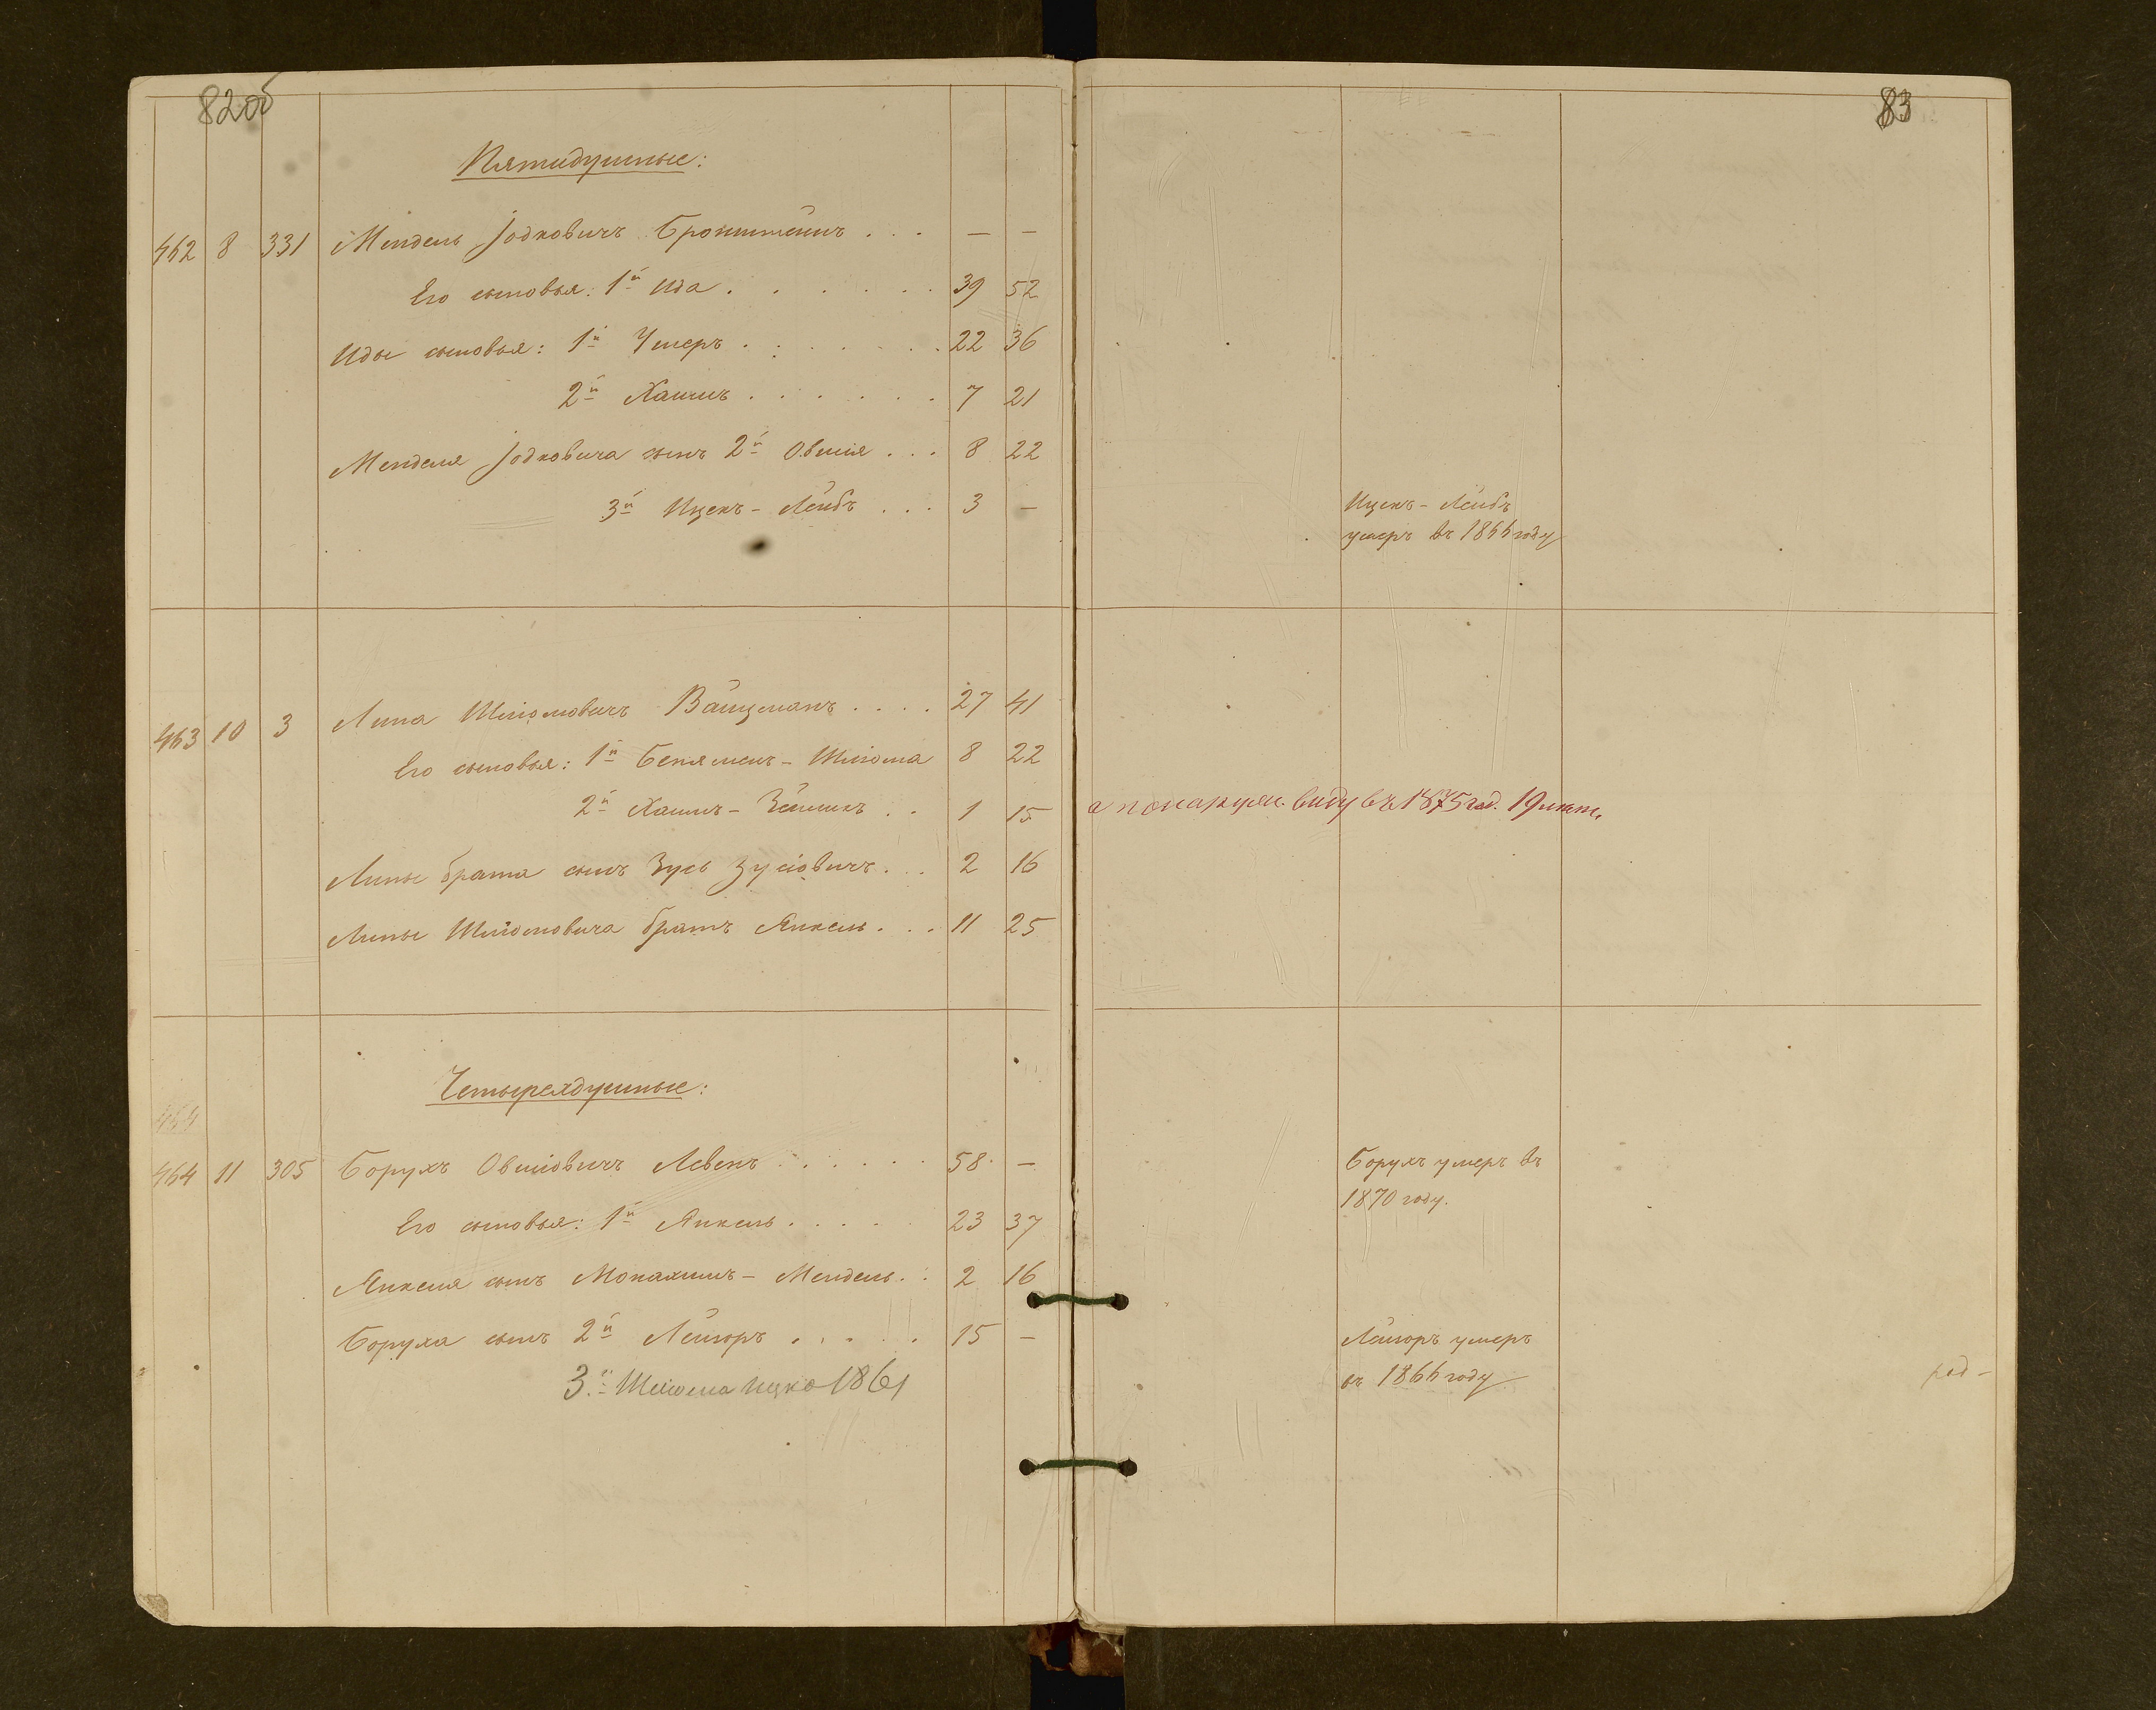 82об
83
Пятидушные:
462 8 331 Мендель Іодковичъ Бронштейнъ . . . — —
Его сыновья: 1й Ида . . . . . . . 39 52
Иды сыновья: 1й Умеръ . . . . . . . 22 36
2й Хаимъ . . . . . . 7 21
Менделя Іодковича сынъ 2й Овшія . . . 8 22
3й Ицекъ - Лейбъ . . . 3 —
Ицекъ - Лейбъ
умеръ въ 1866 году
463 10 3 Липа Шліомовичъ Вайцманъ . . . . 27 41
Его сыновья: 1й Беняменъ - Шліома 8 22
2й Хаимъ - Зейликъ . . 1 15
виду въ 1875 год. 19 лѣт.
Липы брата сынъ Зусь Зусіовичъ . . . 2 16
Липы Шліомовича братъ Янкель . . . 11 25
Четырехдушные:
464
464 11 305 Борухъ Овшіовичъ Левенъ . . . . . . 58 —
Борухъ умеръ въ
1870 году.
Его сыновья: 1й Янкель . . . . . 23 37
Янкеля сынъ Монахимъ - Мендель . . 2 16
Боруха сынъ 2й Лейзоръ . . . . . 15 —
Лейзоръ умеръ
въ 1866 году
3.й Шліома Ицко 1861